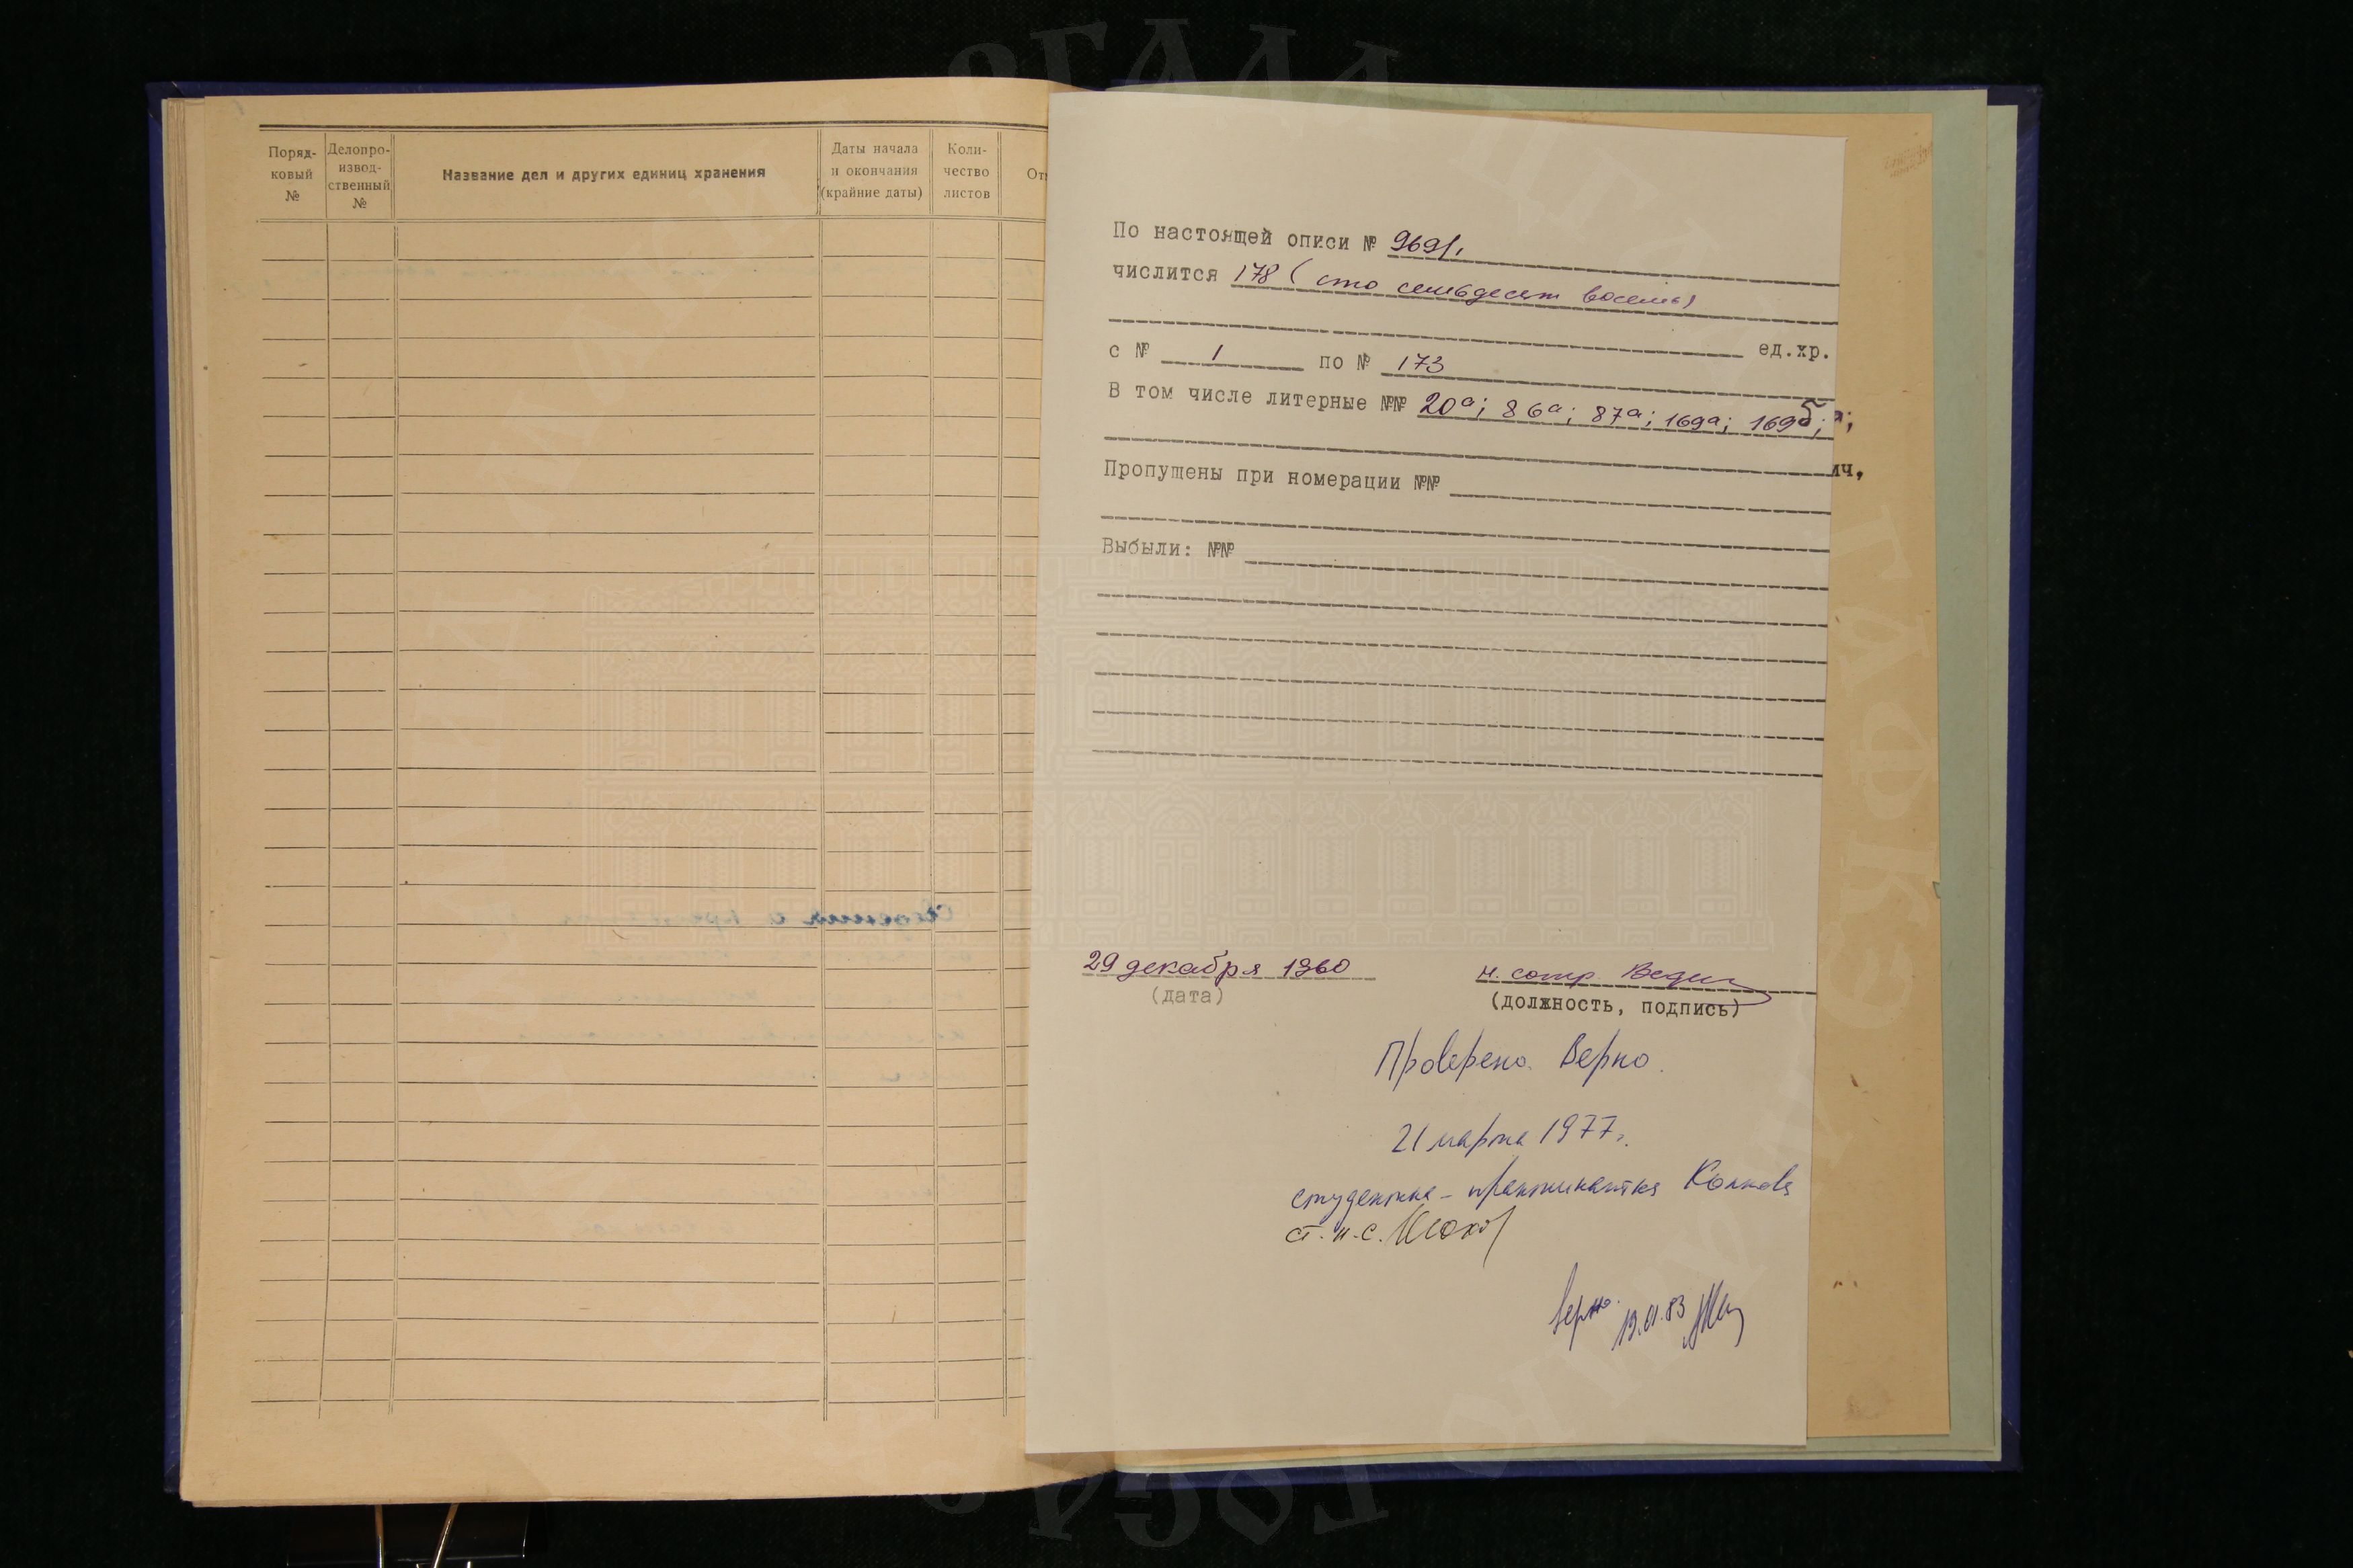 Поряд-
ковый
№
Делопро-
извод-
ственный
№
Название дел и других единиц хранения
Даты начала
и окончания
(крайние даты)
Коли-
чество
листов
От
По настоящей описи № 969/1
числится 178 (сто семьдесят восемь)
ед.хр.
с № 1 по № 173
В том числе литерные №№ 20а; 86а; 87а; 169а; 169б; а;
ич,
Пропущены при номерации №№
Выбыли: №№
29 декабря 1960 н. сотр.
(дата) (должность, подпись)
Проверено. Верно.
21 марта 1977г.
студентка-практикантка
ст. н. с.
Верно. 19.01.83